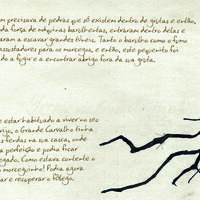 m precisava de pedras que só existem dentro de grutas e então,
da força de máquinas barulhentas, entraram dentro delas e
aram a escavar grandes túneis. Tanto o barulho como o fumo
assustadores para os morcegos, e então, este pequenito foi
do a fugir e a encontrar abrigo fora da sua gruta.
estar habituado a viver no seu
rijo, o Grande Carvalho tinha
fendas na sua casca, onde
perfeição e podia ficar
egado. Como estava contente o
morceguinho! Podia agora
ar e recuperar o fôlego.